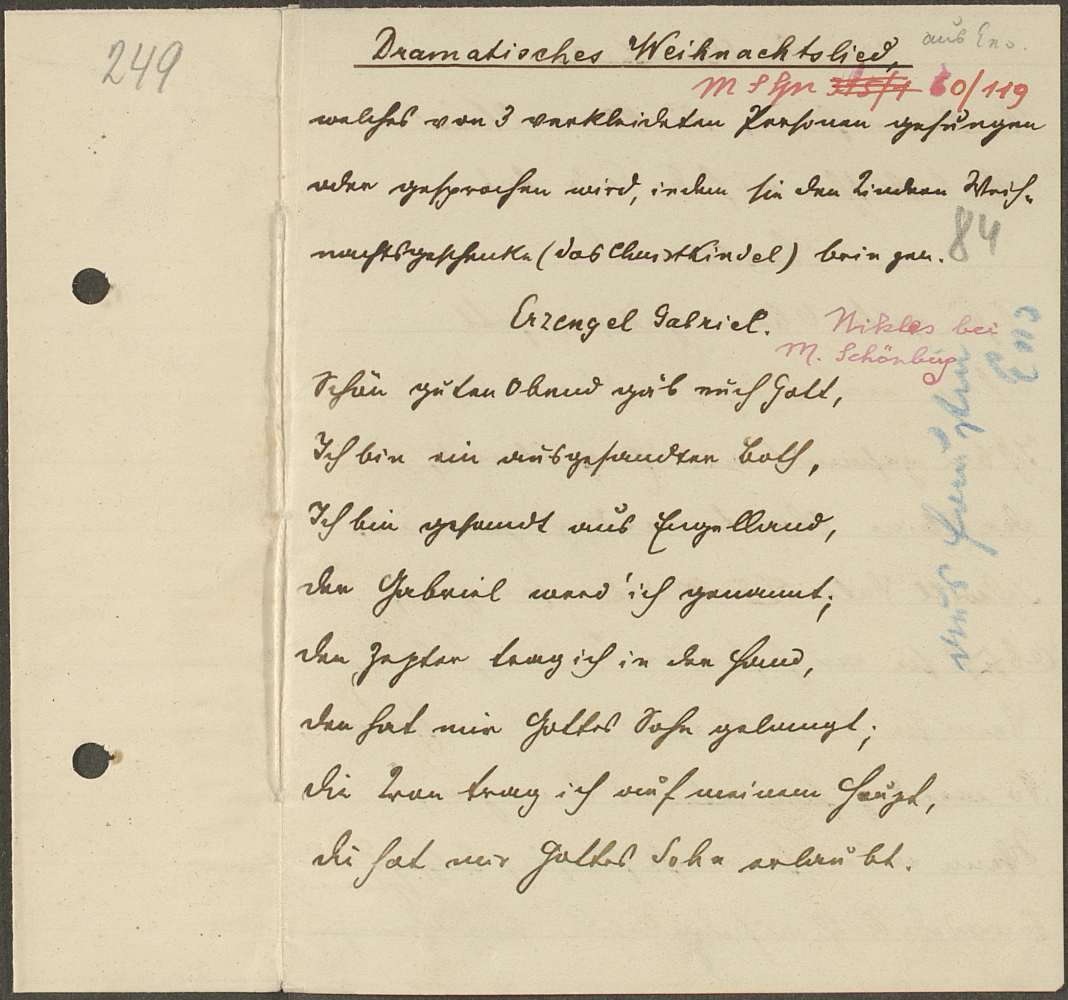 249
Dramatisches Weihnachtslied,
aus Ens.
60/119
welches von 3 verkleideten Personen gesungen
oder gesprochen wird, indem sie den Kindern Weih-
nachtsgeschenke (das Christkindel) bringen.
84
Erzengel Gabriel.
Nikles bei
M. Schönburg
Schön guten Obend gäb euch Gott,
Ich bin ein ausgesandter Both,
Ich bin gesandt aus Engelland,
der Gabriel werd' ich genannt;
den Zepter trag ich in der Hand,
den hat mir Gottes Sohn gelangt;
die Kron trag ich auf meinem Haupt,
die hat mir Gottes Sohn erlaubt.
Ens